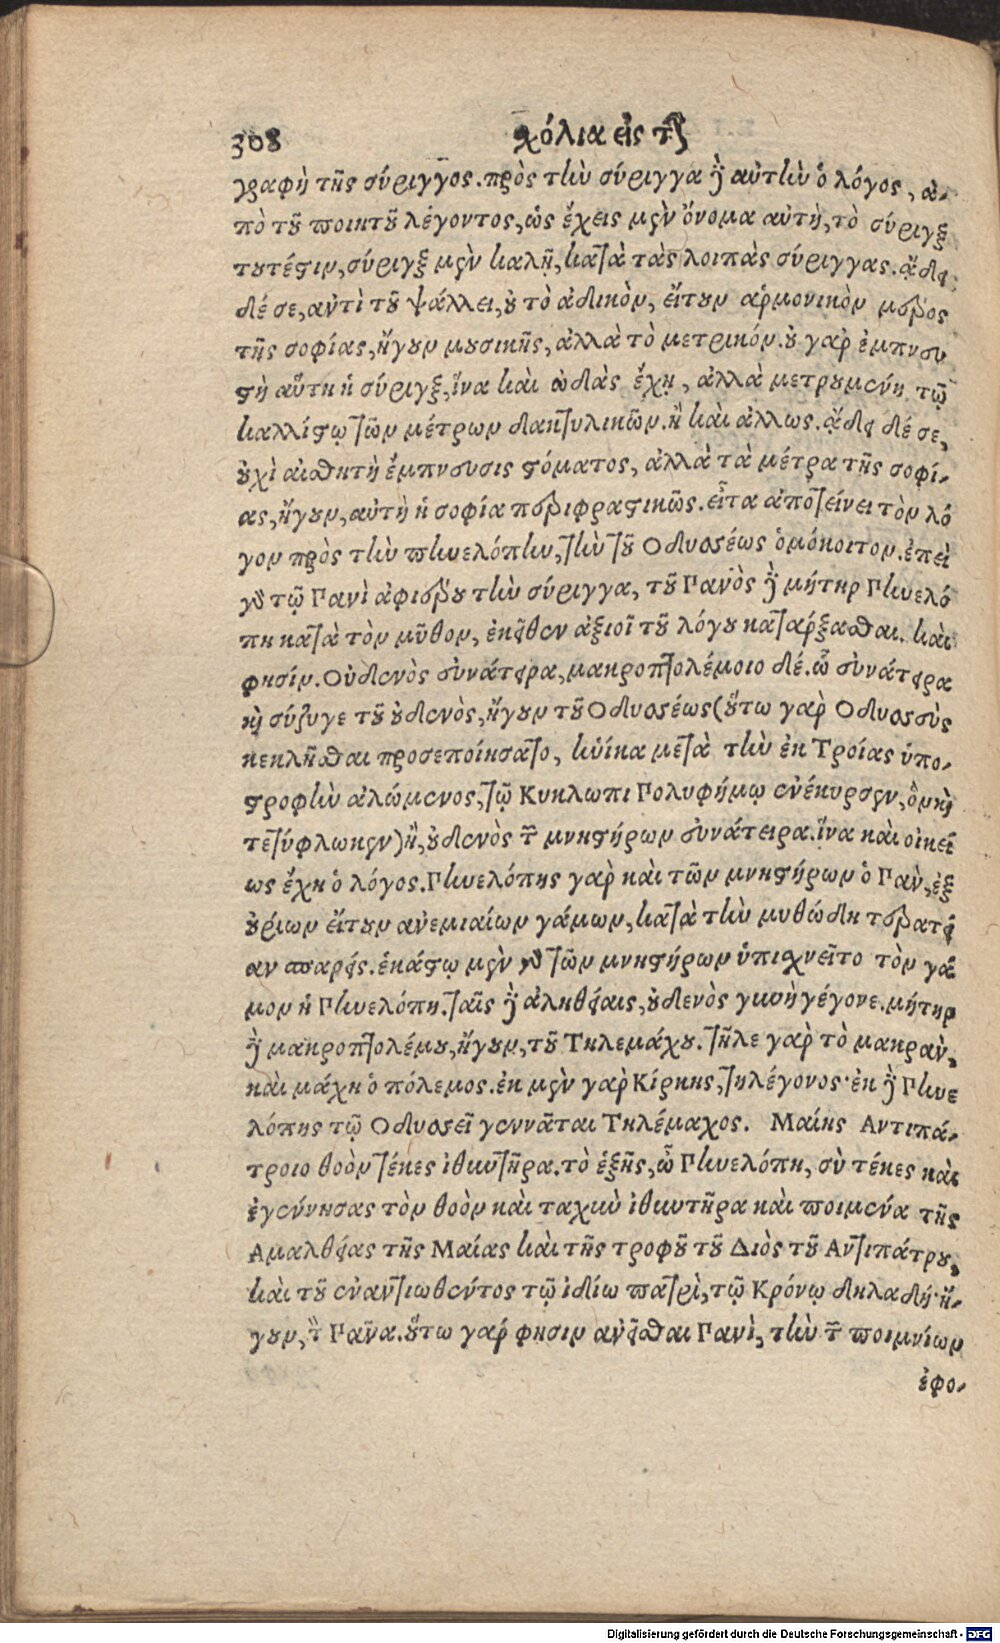 308 χόλια εἰς τ
γραφὴ τῆς σύριγγος. πρὸς τὴν σύριγγα δὲ αὐτὴν ὁ λόγος, ἀ-
πὸ τοῦ ποιητοῦ λέγοντος, ὡς ἔχεις μὲν ὄνομα αὐτὴ, τὸ σύριγξ
τουτέστιν, σύριγξ μὲν καλῇ, κατὰ τὰς λοιπὰς σύριγγας. ᾄδει
δέ σε, αντὶ τοῦ ψάλλει, οὐ τὸ ἀδικὸν, εἴτουν ἁρμονικὸν μέρος
τῆς σοφίας, ἤγουν μουσικῆς, ἀλλὰ τὸ μετρικόν. οὐ γαρ ἐμπνευ
στὴ αὕτη ἡ σύριγξ, ἵνα καὶ ὠδὰς ἔχῃ, ἀλλὰ μετρουμένη τῷ
καλλίστῳ τῶν μέτρων δακτυλικῶν. ἢ καὶ ἀλλως. ᾄδει δέ σε,
οὐχὶ αισθητὴ ἔμπνευσις στόματος, ἀλλὰ τὰ μέτρα τῆς σοφί-
ας, ἤγουν, αὐτὴ ἡ σοφία περιφραστικῶς. εἶτα αποτείνει τὸν λό
γον πρὸς τὴν πηνελόπην, τὴν τοῦ Οδυσσέως ὁμόκοιτον. ἐπεὶ
γὰρ τῷ Πανὶ ἀφιερου τὴν σύριγγα, τοῦ Πανὸς δὲ μήτηρ Πηνελό
πη κατὰ τὸν μῦθον, ἐκεῖθεν ἀξιοῖ τοῦ λόγου κατάρξασθαι. καὶ
φησίν. Οὐδενὸς εὐνάτειρα, μακροπτολέμοιο δέ. ὦ εὐνάτειρα
καὶ σύζυγε τοῦ οὐδενὸς, ἤγουν τοῦ Οδυσσέως (οὕτω γαρ Οδυσσεὺς
κεκλῆσθαι προσεποίησατο, ἡνίκα μετὰ τὴν ἐκ Τροίας ὑπο-
στροφὴν ἀλώμενος, τῷ Κυκλωπι Πολυφήμῳ ἐνέκυρσεν, ὃν καὶ
τετύφλωκεν) ἢ, οὐδενὸς τῶν μνηστήρων εὐνάτειρα. ἵνα καὶ οἰκεί
ως ἔχη ὁ λόγος. Πηνελόπης γαρ καὶ τῶν μνηστήρων ὁ Παν, ἐξ
οὐρίων εἴτουν ανεμιαίων γάμων, κατὰ τὴν μυθώδη τερατεί
αν παρείς. ἑκάστῳ μὲν γὰρ τῶν μνηστήρων ὑπισχνεῖτο τὸν γά
μον ἡ Πηνελόπη. ταῖς δὲ ἀληθείαις, οὐδενὸς γυνὴ γέγονε. μήτηρ
δὲ μακροπτολέμου, ἤγουν, τοῦ Τηλεμάχου. τῆλε γαρ τὸ μακρὰν,
καὶ μάχη ὁ πόλεμος. ἐκ μὲν γαρ Κίρκης, τηλέγονος· ἐκ δὲ Πηνε
λόπης τῷ Οδυσσεῖ γεννᾶται Τηλέμαχος. Μαίης Αντιπά-
τροιο θοὸν τέκες ἰθυντῆρα. τὸ ἑξῆς, ὦ Πηνελόπη, σὺ τέκες καὶ
ἐγέννησας τὸν θοὸν καὶ ταχὺν ἰθυντῆρα καὶ ποιμένα τῆς
Αμαλθείας τῆς Μαίας καὶ τῆς τροφοῦ τοῦ Διὸς τοῦ Αντιπάτρου,
καὶ τοῦ ἐναντιωθέντος τῷ ἰδίω πατρὶ, τῷ Κρόνῳ δηλαδή· ἤ-
γουν, τὸν Πᾶνα. οὕτω γάρ φησιν ανεῖσθαι Πανὶ, τὴν τῶν ποιμνίων
ἐφο-
Digitalisierung gefördert durch die Deutsche Forschungsgemeinschaft - DFG